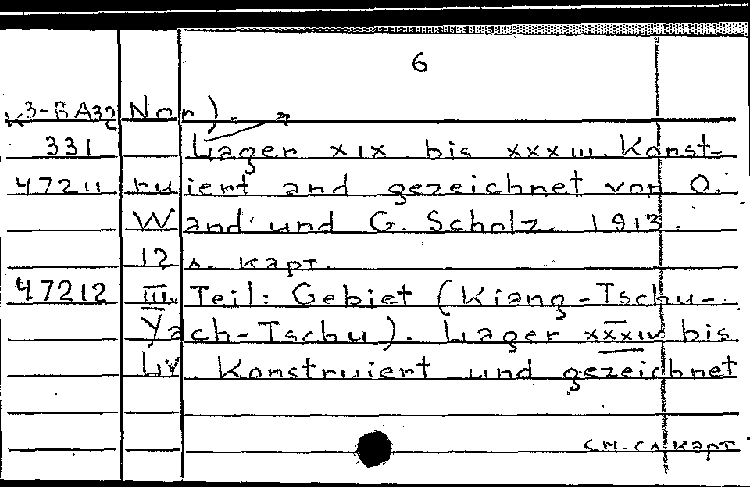 6
К3-ВА32 Nor).
331 Lager XIX bis XXXIII Konst-
47211 ruiert and gezeichnet von O.
Wand und G. Scholz. 1913.
12 л. карт.
47212 III. Teil: Gebiet (Kiang-Tschu-
Yach-Tschu). Lager XXXIV bis
LV Konstruiert und gezeichnet
см. сл. карт